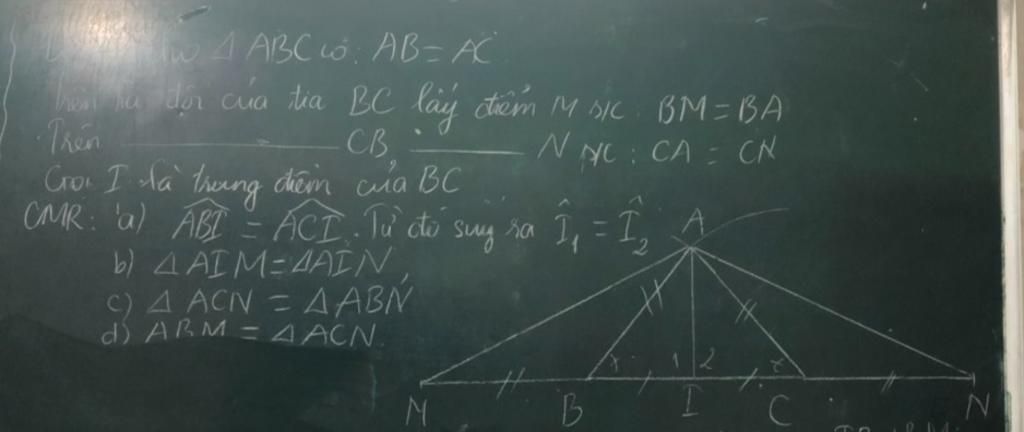 Δ ABC có: AB = AC
Trên tia đối của tia BC lấy điểm M s/c: BM = BA
Trên ———— CB ———— N s/c: CA = CN
Gọi I là trung điểm của BC
CMR: a) ABI = ACI. Từ đó suy ra Î₁ = Î₂
b) Δ AIM = Δ AIN
c) Δ ACN = Δ ABN
d) ABM = Δ ACN
A
1 2
M B I C N